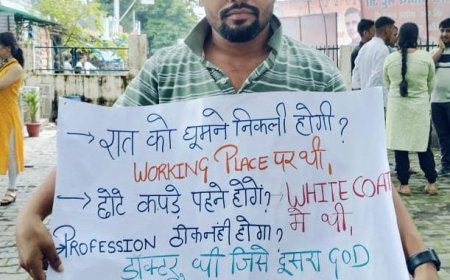 → रात को घूमने निकली होगी?
WORKING PLACE पर थी,
→ छोटे कपड़े पहने होंगे? → WHITE COAT
में थी,
PROFESSION ठीक नहीं होगा?
डॉक्टर थी जिसे दूसरा GOD